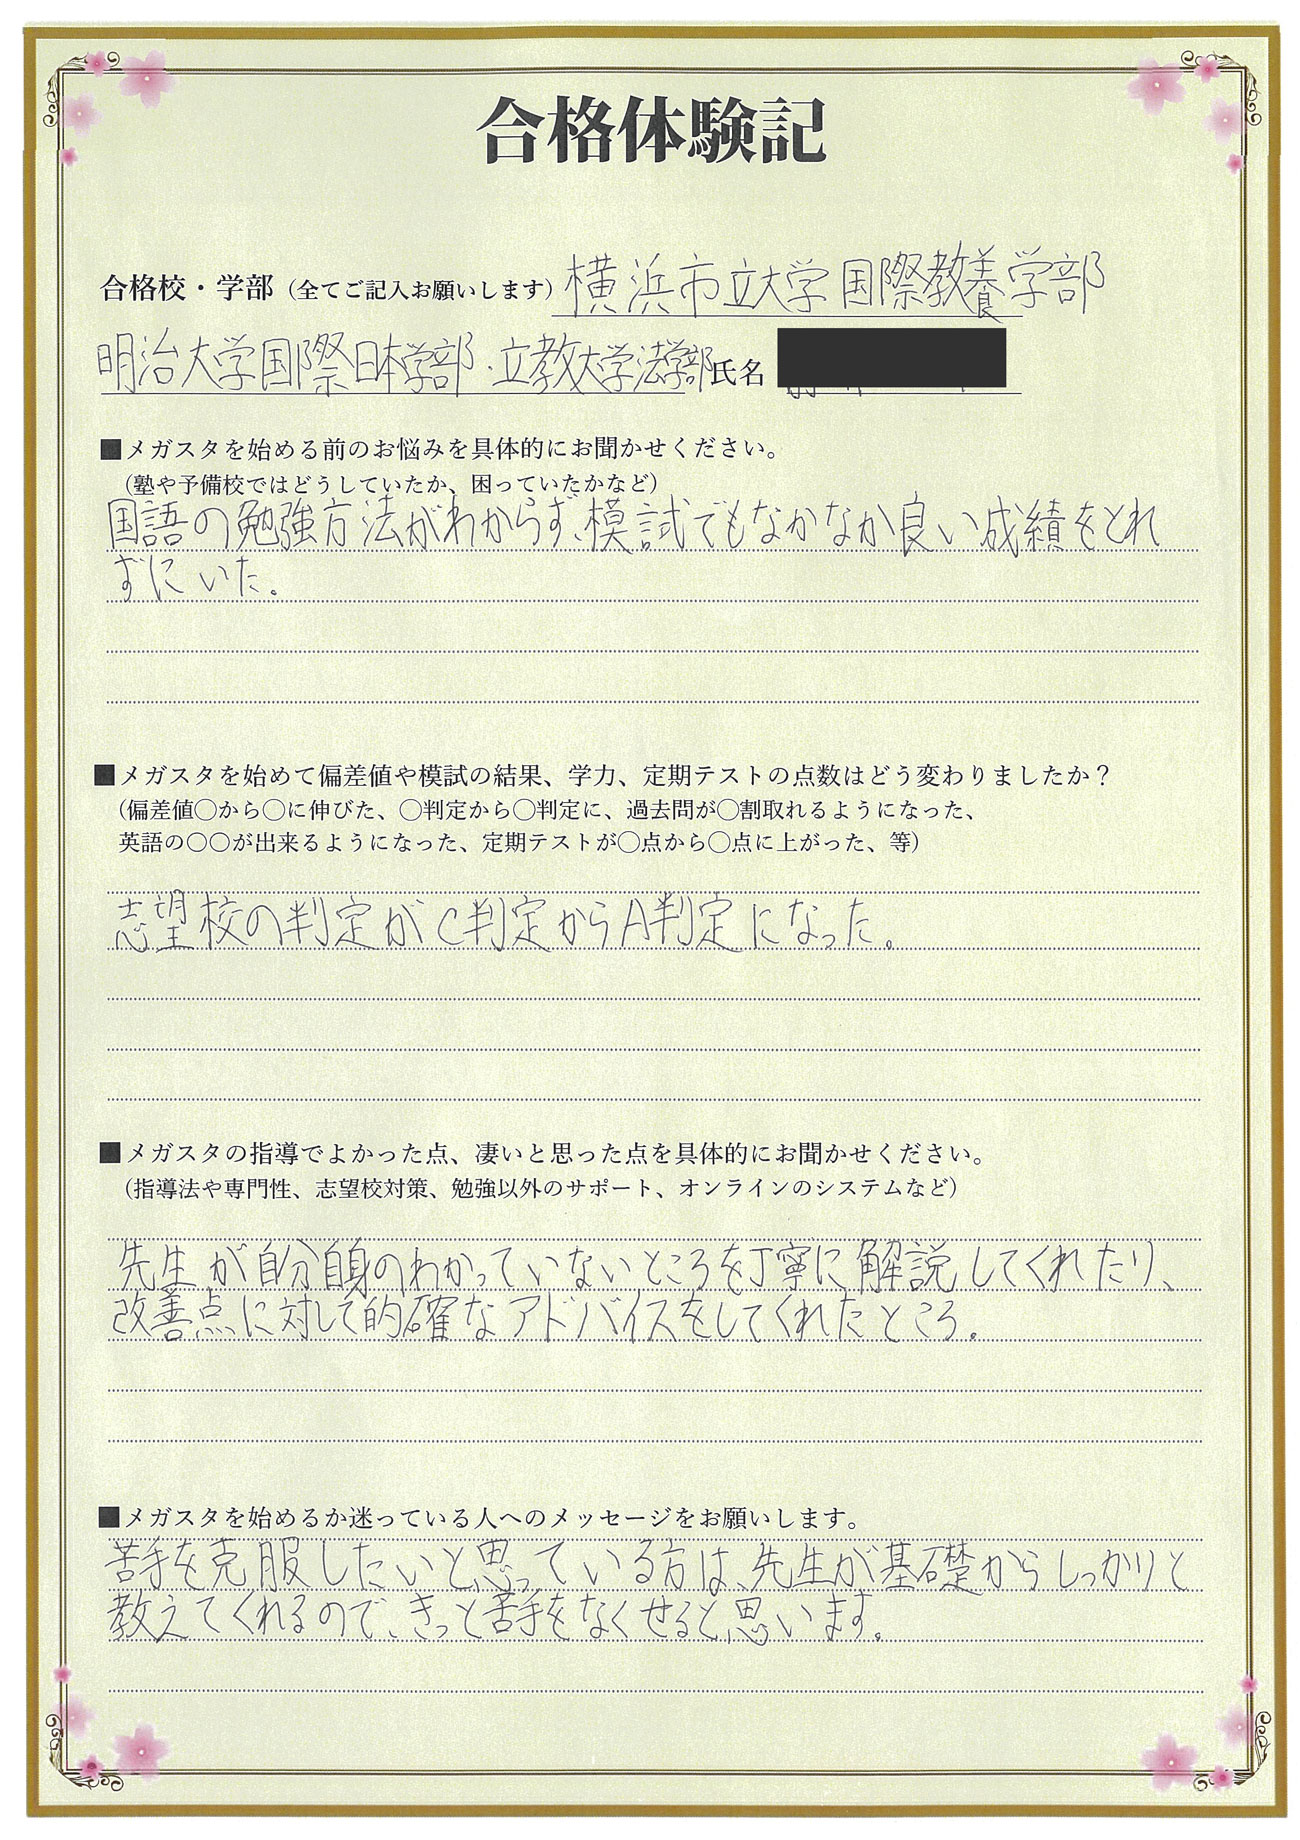 合格体験記
合格校・学部（全てご記入お願いします）横浜市立大学国際教養学部
明治大学国際日本学部・立教大学法学部 氏名
■メガスタを始める前のお悩みを具体的にお聞かせください。
（塾や予備校ではどうしていたか、困っていたかなど）
国語の勉強方法がわからず、模試でもなかなか良い成績をとれ
ずにいた。
■メガスタを始めて偏差値や模試の結果、学力、定期テストの点数はどう変わりましたか？
（偏差値〇から〇に伸びた、〇判定から〇判定に、過去問が〇割取れるようになった、
英語の〇〇が出来るようになった、定期テストが〇点から〇点に上がった、等）
志望校の判定がC判定からA判定になった。
■メガスタの指導でよかった点、凄いと思った点を具体的にお聞かせください。
（指導法や専門性、志望校対策、勉強以外のサポート、オンラインのシステムなど）
先生が自分自身のわかっていないところを丁寧に解説してくれたり、
改善点に対して的確なアドバイスをしてくれたところ。
■メガスタを始めるか迷っている人へのメッセージをお願いします。
苦手を克服したいと思っている方は、先生が基礎からしっかりと
教えてくれるので、きっと苦手をなくせると思います。